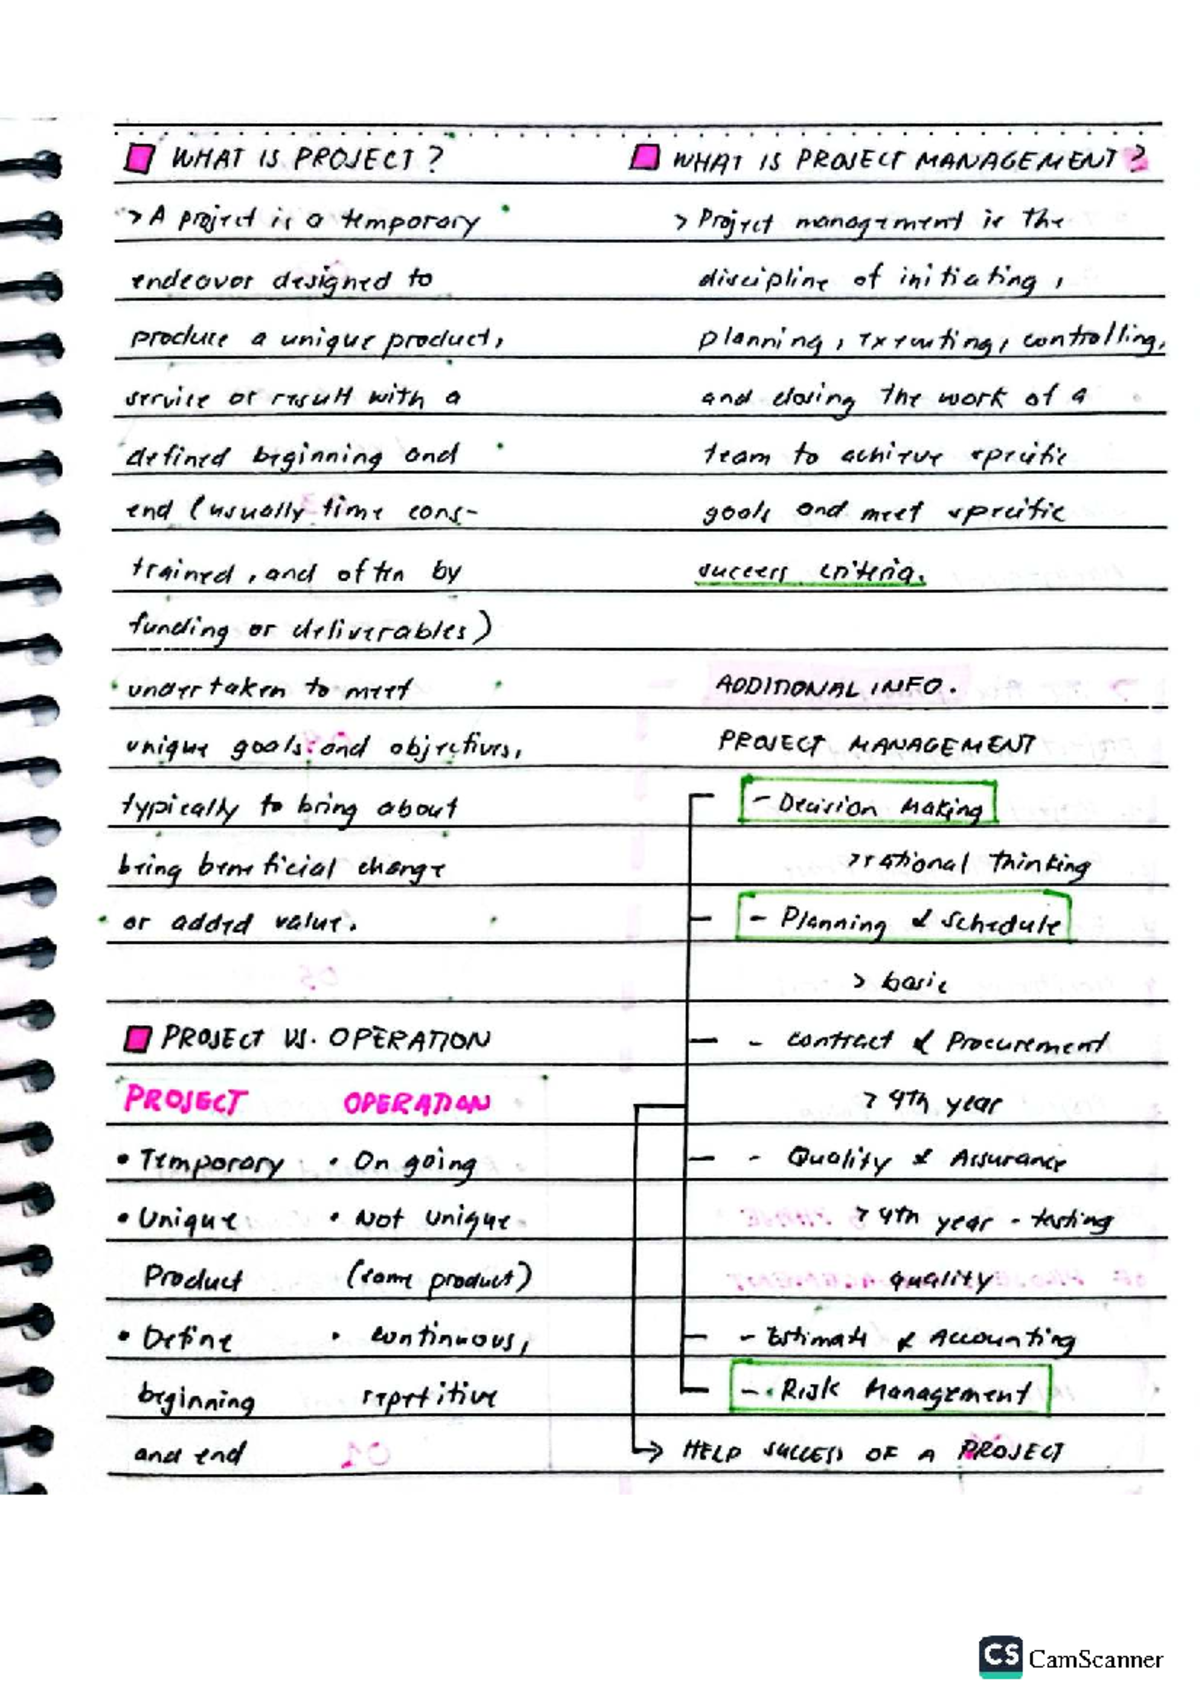 WHAT IS PROJECT?
> A project is a temporary
endeavor designed to
produce a unique product,
service or result with a
defined beginning and
end (usually time cons-
trained, and often by
funding or deliverables)
undertaken to meet
unique goals and objectives,
typically to bring about
being beneficial change
or added value.
PROJECT VS. OPERATION
PROJECT OPERATION
• Temporary • On going
• Unique • Not unique
Product (same product)
• Define • continuous,
beginning repetitive
and end
WHAT IS PROJECT MANAGEMENT?
> Project management is the
discipline of initiating,
planning, executing, controlling,
and closing the work of a
team to achieve specific
goals and meet specific
success criteria.
ADDITIONAL INFO.
PROJECT MANAGEMENT
- Decision Making
> rational thinking
- Planning & Schedule
> basic
- Contract & Procurement
> 4th year
- Quality & Assurance
> 4th year - testing
quality
- Estimate & Accounting
- Risk Management
HELP SUCCESS OF A PROJECT
CS CamScanner